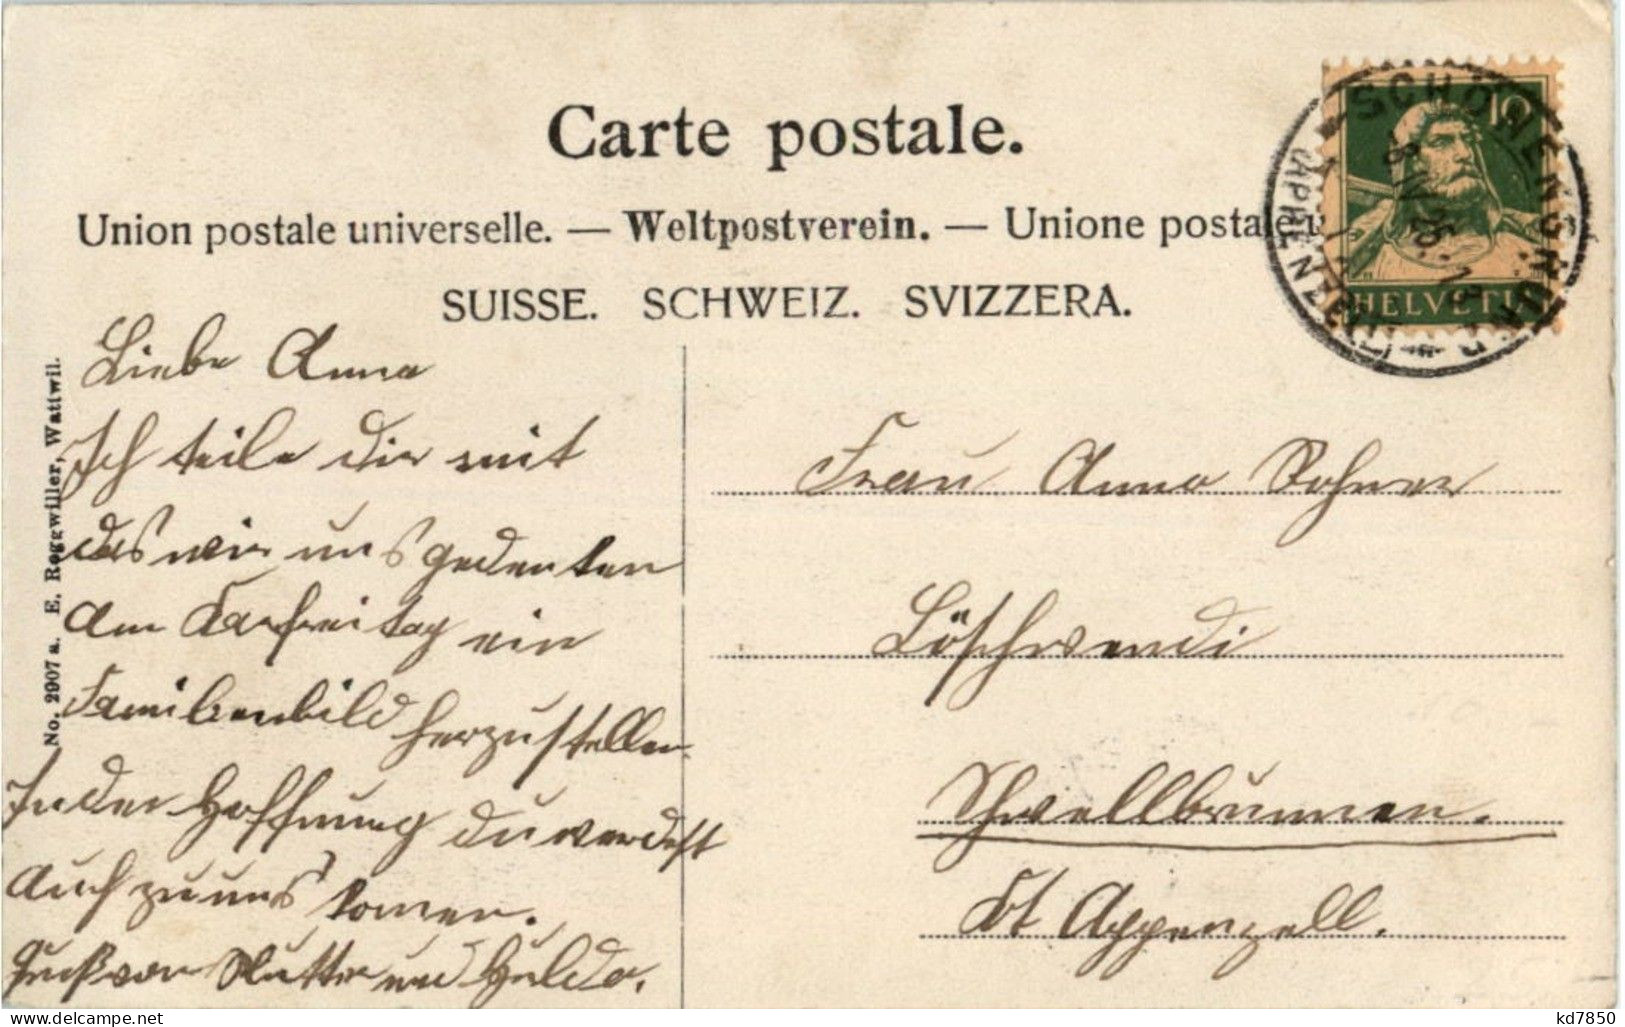 Carte postale.
Union postale universelle. — Weltpostverein. — Unione postale u
SUISSE. SCHWEIZ. SVIZZERA.
No. 2907 a. E. Roggwiller, Wattwil.
SCHÖNENGRUND
(APPENZELL)
8.IV.25.
10
HELVETI
Liebe Anna
Ich teile dir mit
das wir uns gedenken
am Karfreitag ein
Familienbild herzustellen.
In der Hoffnung du werdest
auch zu uns komen.
Gruß von Mutter und Hulda.
Frau Anna
Löschwendi
Schwellbrunnen.
Kt Appenzell.
delcampe.net
kd7850